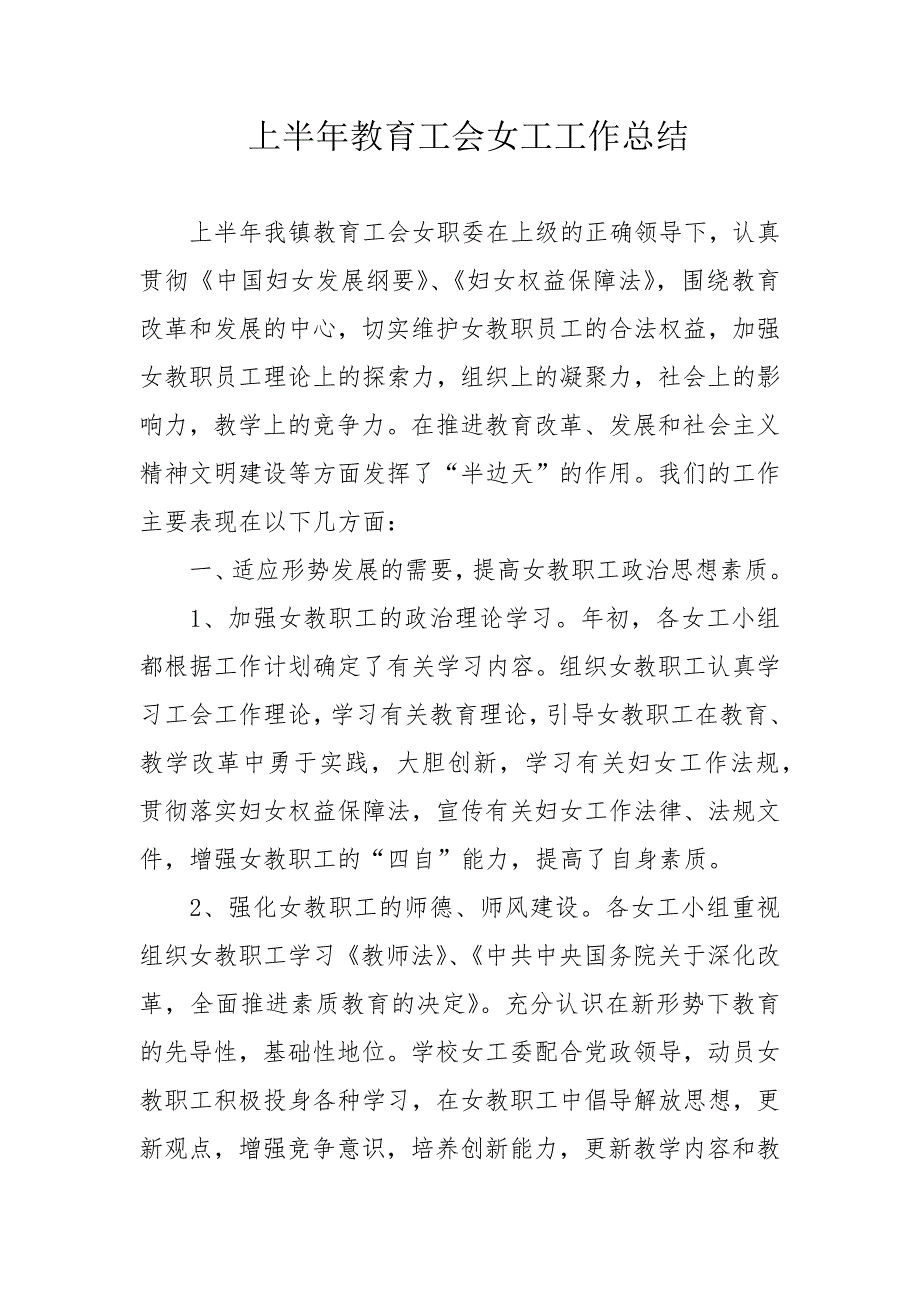 上半年教育工会女工工作总结
上半年我镇教育工会女职委在上级的正确领导下，认真
贯彻《中国妇女发展纲要》、《妇女权益保障法》，围绕教育
改革和发展的中心，切实维护女教职员工的合法权益，加强
女教职员工理论上的探索力，组织上的凝聚力，社会上的影
响力，教学上的竞争力。在推进教育改革、发展和社会主义
精神文明建设等方面发挥了“半边天”的作用。我们的工作
主要表现在以下几方面：
一、适应形势发展的需要，提高女教职工政治思想素质。
1、加强女教职工的政治理论学习。年初，各女工小组
都根据工作计划确定了有关学习内容。组织女教职工认真学
习工会工作理论，学习有关教育理论，引导女教职工在教育、
教学改革中勇于实践，大胆创新，学习有关妇女工作法规，
贯彻落实妇女权益保障法，宣传有关妇女工作法律、法规文
件，增强女教职工的“四自”能力，提高了自身素质。
2、强化女教职工的师德、师风建设。各女工小组重视
组织女教职工学习《教师法》、《中共中央国务院关于深化改
革，全面推进素质教育的决定》。充分认识在新形势下教育
的先导性，基础性地位。学校女工委配合党政领导，动员女
教职工积极投身各种学习，在女教职工中倡导解放思想，更
新观点，增强竞争意识，培养创新能力，更新教学内容和教